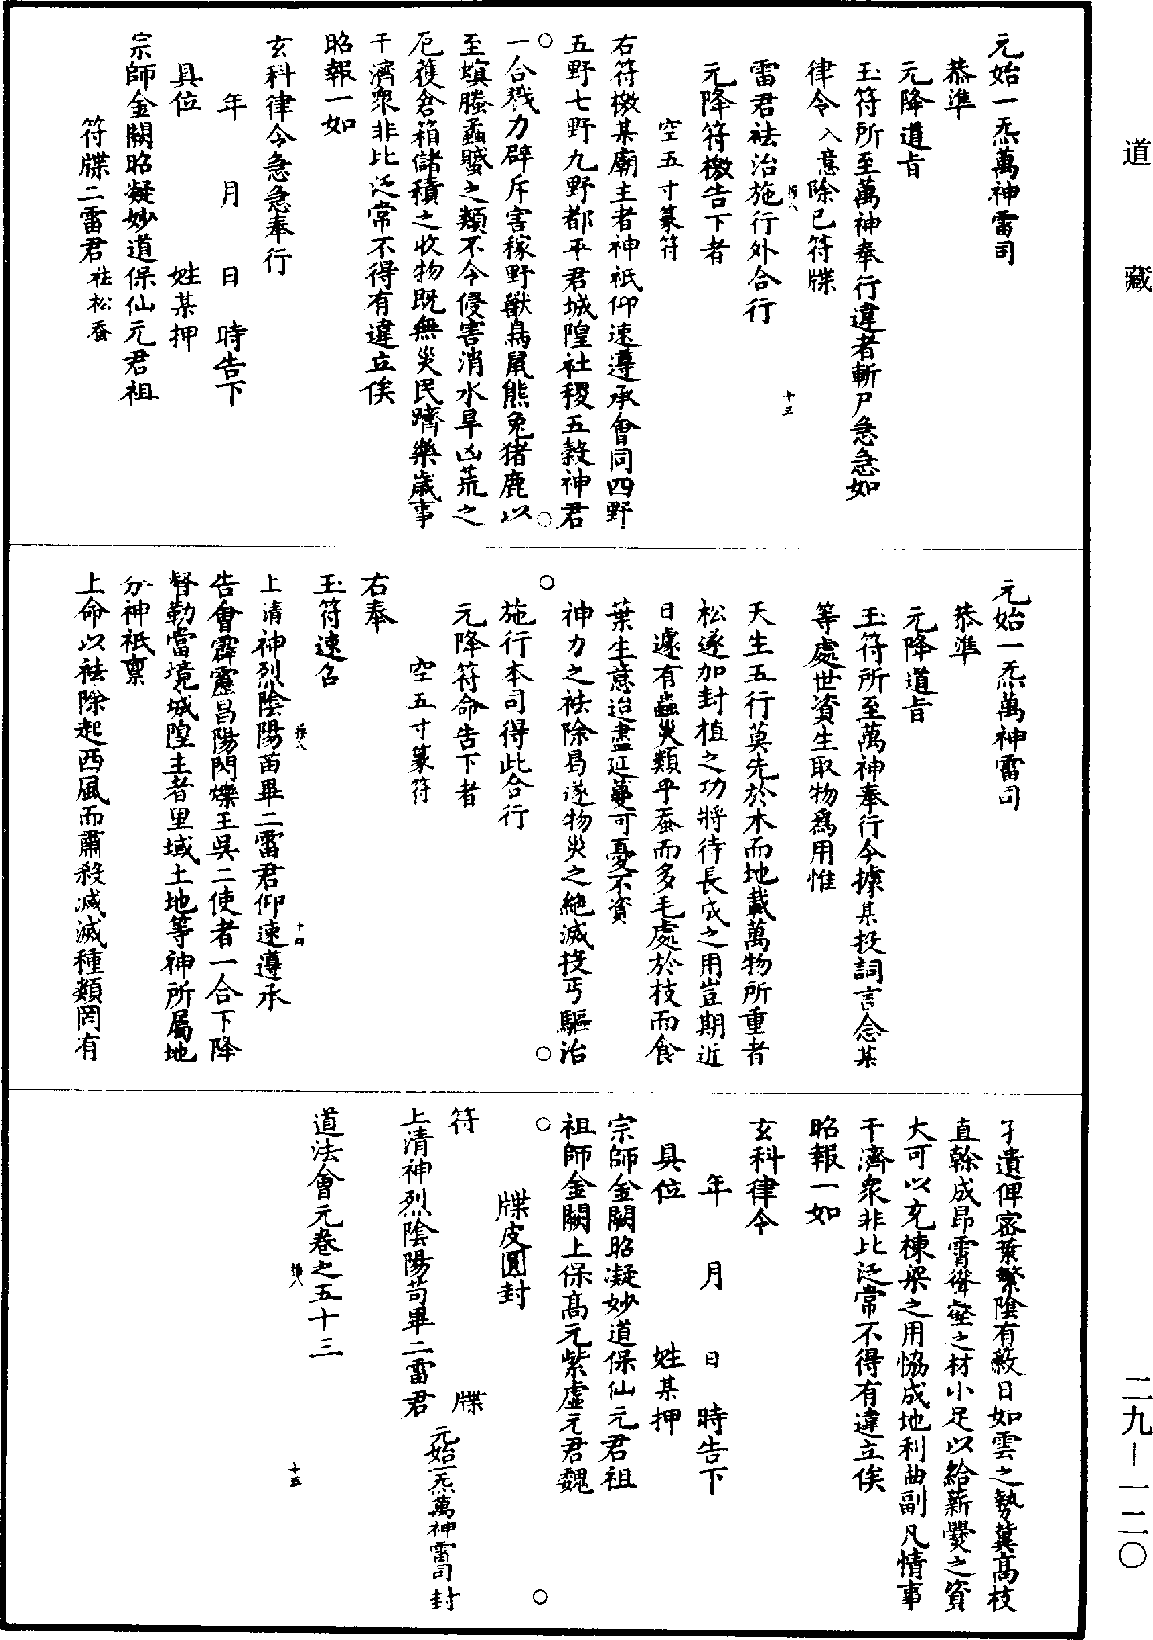 道藏
二九—一二〇
元始一炁萬神雷司
恭準
元降道旨
玉符所至萬神奉行違者斬尸急急如
律令入意除已符牒
雷君祛治施行外合行
元降符檄告下者
空五寸篆符
右符檄某廟主者神祇仰速遵承會同四野
五野七野九野都平君城隍社稷五穀神君
一合戮力辟斥害稼野獸鳥鼠熊兔猪鹿以
至螟螣蟊蠈之類不令侵害消水旱凶荒之
厄䕶倉箱儲積之收物既無災民躋樂歲事
干濟衆非比泛常不得有違立俟
昭報一如
玄科律令急急奉行
年 月 日 時告下
具位 姓某押
宗師金闕昭凝妙道保仙元君祖
符牒二雷君祛松蚕
十三
元始一炁萬神雷司
恭準
元降道旨
玉符所至萬神奉行今據某投詞言念某
等處世資生取物爲用惟
天生五行莫先於木而地載萬物所重者
松遂加封植之功將待長成之用豈期近
日遽有蟲災類乎蚕而多毛處於枝而食
葉生意迨盡延蔓可憂不資
神力之祛除曷遂物災之絶滅投丐驅治
施行本司得此合行
元降符命告下者
空五寸篆符
右奉
玉符速召
上清神烈陰陽苟畢二雷君仰速遵承
告會霹靂昌陽閃爍王吳二使者一合下降
督勒當境城隍主者里域土地等神所屬地
分神祇稟
上命以祛除起西風而肅殺滅滅種類罔有
十四
孑遺俾密葉繁陰有蔽日如雲之勢冀高枝
直榦成昂霄聳壑之材小足以給薪爨之資
大可以充棟梁之用恊成地利曲副凡情事
干濟衆非比泛常不得有違立俟
昭報一如
玄科律令
年 月 日 時告下
具位 姓某押
宗師金闕昭凝妙道保仙元君祖
祖師金闕上保高元紫虛元君魏
牒皮圓封
符 牒
上清神烈陰陽苟畢二雷君 元始一炁萬神雷司封
道法會元卷之五十三
十五